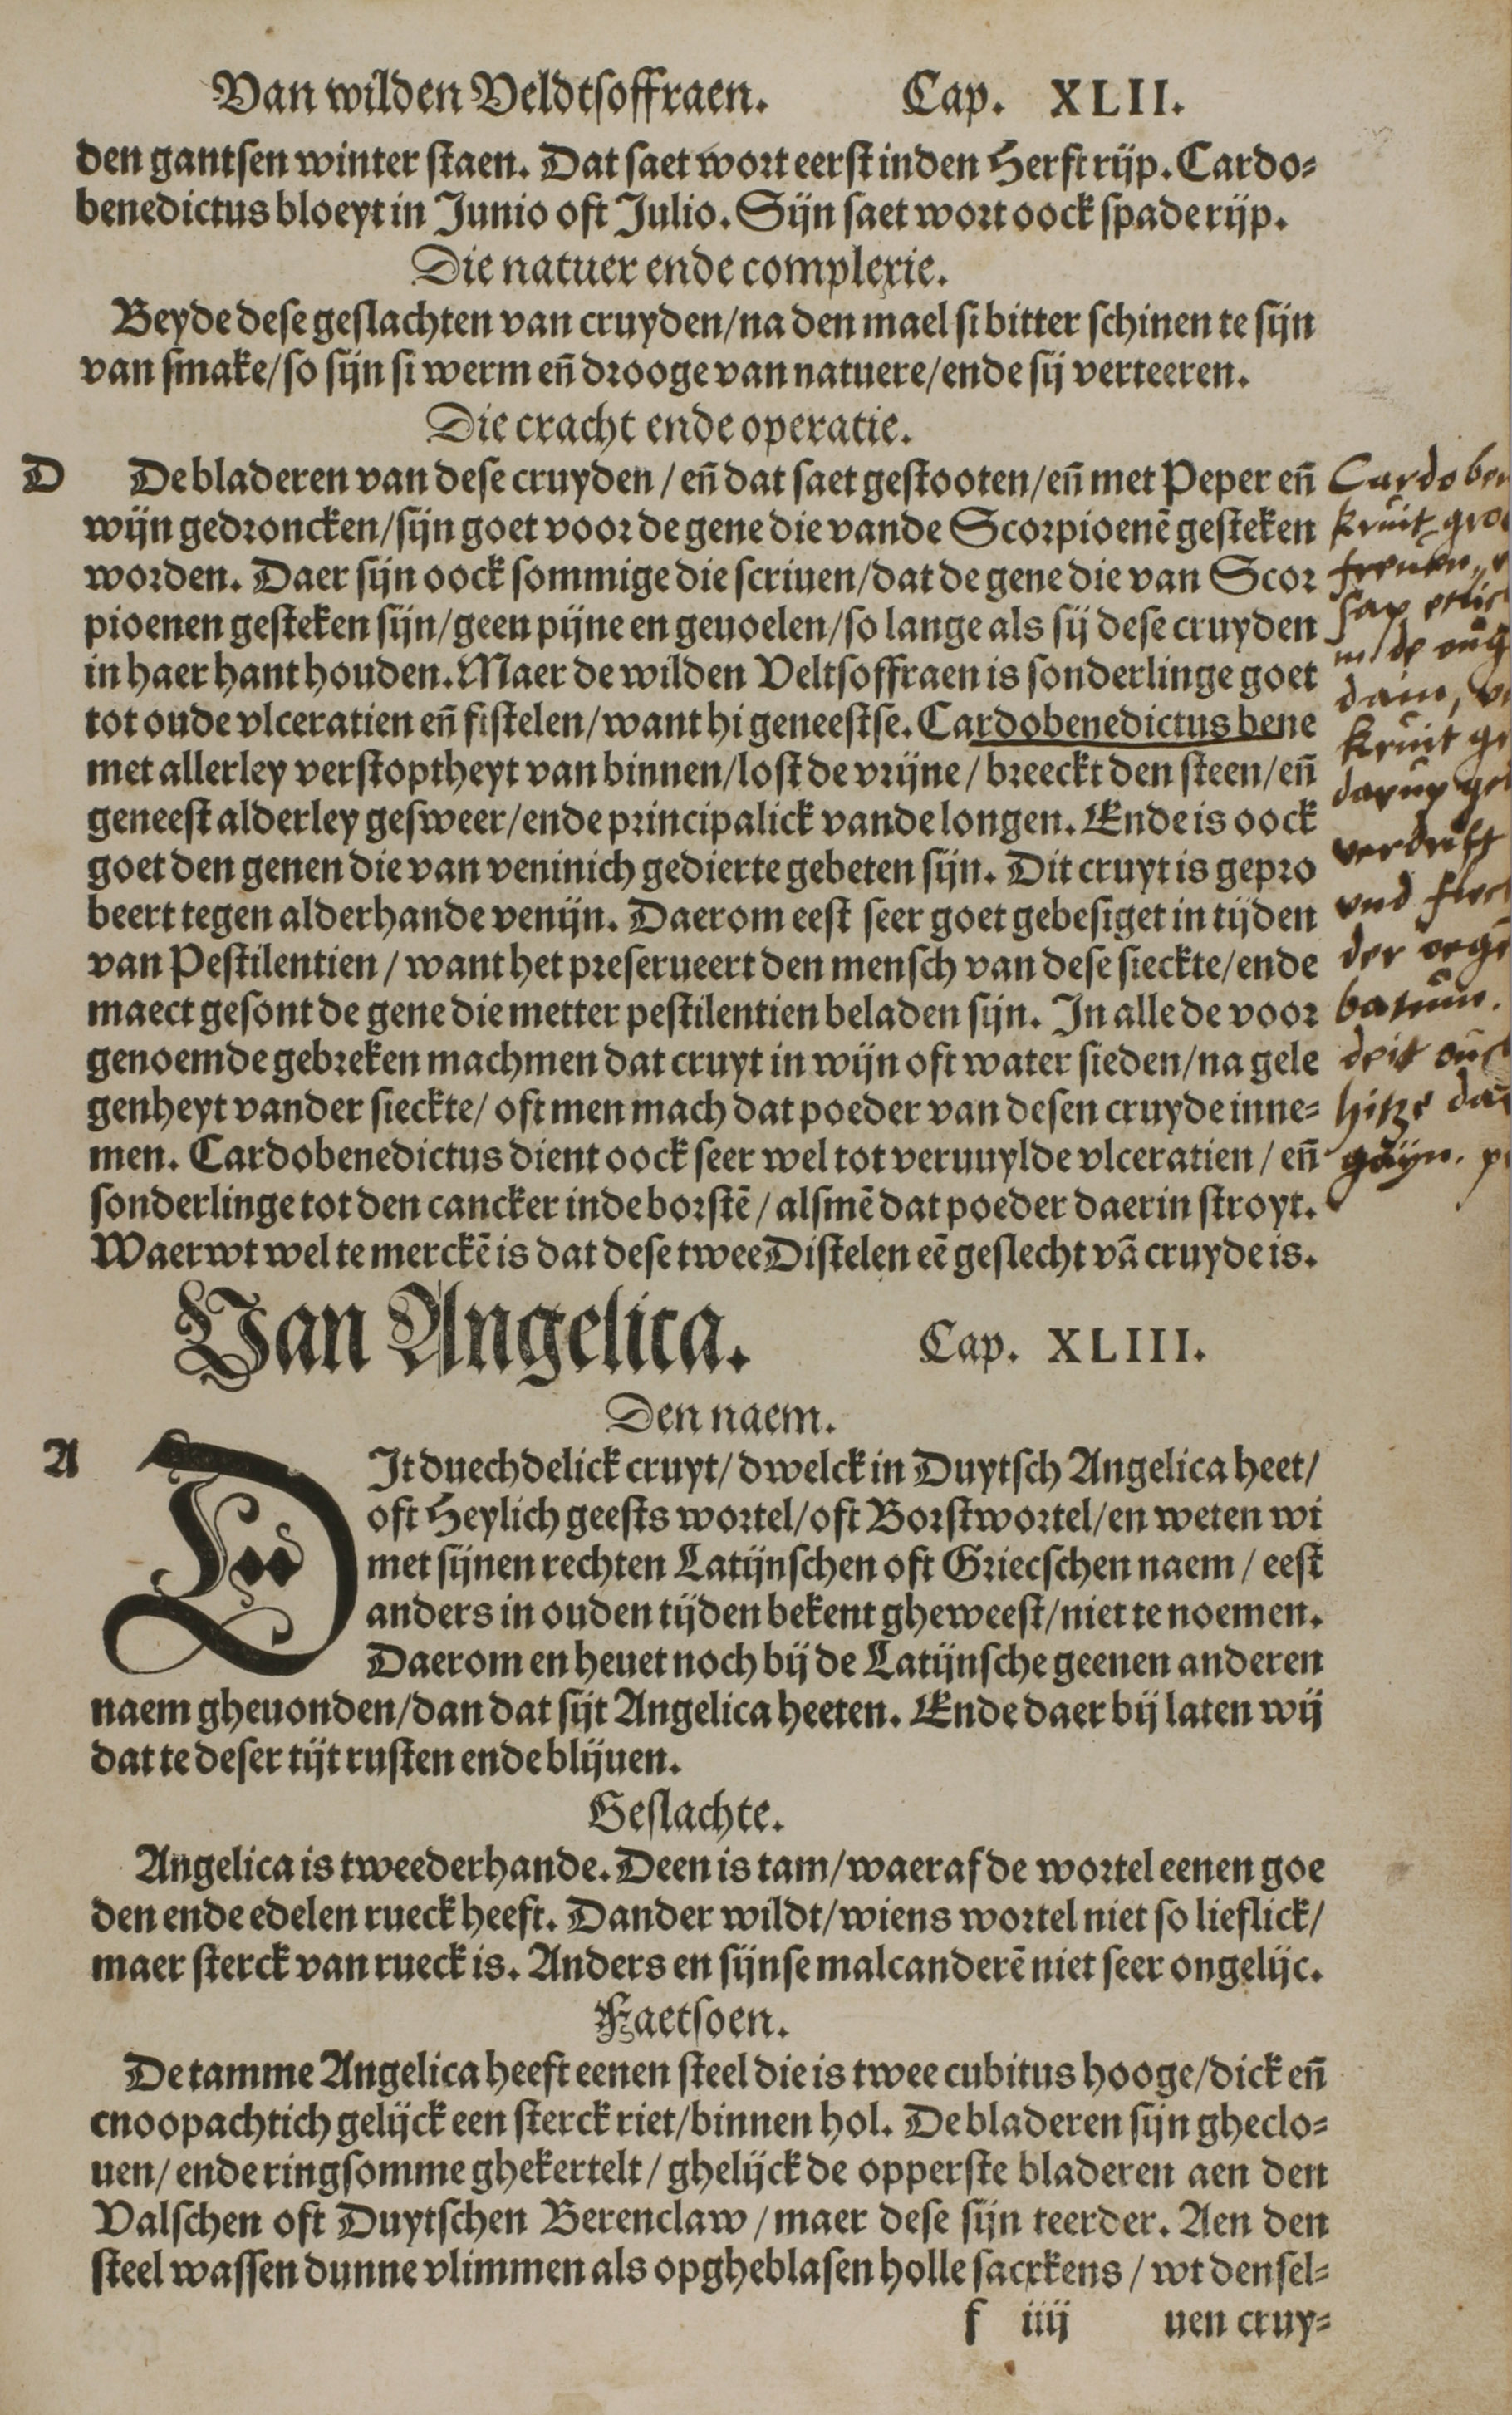 Van wilden Veldtsoffraen. Cap. XLII.
den gantsen winter staen. Dat saet wort eerst inden Herfst rijp. Cardo⸗
benedictus bloeyt in Junio oft Julio. Sijn saet wort oock spade rijp.
Die natuer ende complexie.
Beyde dese geslachten van cruyden/na den mael si bitter schinen te sijn
van smake/so sijn si werm eñ drooge van natuere/ende sij verteeren.
Die cracht ende operatie.
D De bladeren van dese cruyden/eñ dat saet gestooten/eñ met Peper eñ
wijn gedroncken/sijn goet voor de gene die vande Scorpioenē gesteken
worden. Daer sijn oock sommige die scriuen/dat de gene die van Scor
pioenen gesteken sijn/geen pijne en geuoelen/so lange als sij dese cruyden
in haer hant houden. Maer de wilden Veltsoffraen is sonderlinge goet
tot oude vlceratien eñ fistelen/want hi geneestse. Cardobenedictus bene
met allerley verstoptheyt van binnen/lost de vrijne/breeckt den steen/eñ
geneest alderley gesweer/ende principalick vande longen. Ende is oock
goet den genen die van veninich gedierte gebeten sijn. Dit cruyt is gepro
beert tegen alderhande venijn. Daerom eest seer goet gebesiget in tijden
van Pestilentien/want het preserueert den mensch van dese sieckte/ende
maect gesont de gene die metter pestilentien beladen sijn. In alle de voor
genoemde gebreken machmen dat cruyt in wijn oft water sieden/na gele
genheyt vander sieckte/oft men mach dat poeder van desen cruyde inne⸗
men. Cardobenedictus dient oock seer wel tot veruuylde vlceratien/eñ
sonderlinge tot den cancker inde borstē/alsmē dat poeder daer in stroyt.
Waer wt wel te merckē is dat dese twee Distelen eē geslecht vā cruyde is.
Cardo
kruit
kruit
und
der
hitze
Van Angelica. Cap. XLIII.
Den naem.
A DIt duechdelick cruyt/dwelck in Duytsch Angelica heet/
oft Heylich geests wortel/oft Borstwortel/en weten wi
met sijnen rechten Latijnschen oft Griecschen naem/eest
anders in ouden tijden bekent gheweest/niet te noemen.
Daerom en heuet noch bij de Latijnsche geenen anderen
naem gheuonden/dan dat sijt Angelica heeten. Ende daer bij laten wij
dat te deser tijt rusten ende blijuen.
Geslachte.
Angelica is tweederhande. Deen is tam/waer af de wortel eenen goe
den ende edelen rueck heeft. Dander wildt/wiens wortel niet so lieflick/
maer sterck van rueck is. Anders en sijnse malcanderē niet seer ongelijc.
Faetsoen.
De tamme Angelica heeft eenen steel die is twee cubitus hooge/dick eñ
cnoopachtich gelijck een sterck riet/binnen hol. De bladeren sijn gheclo⸗
uen/ende ringsomme ghekertelt/ghelijck de opperste bladeren aen den
Valschen oft Duytschen Berenclaw/maer dese sijn teerder. Aen den
steel wassen dunne vlimmen als opgheblasen holle sacxkens/wt den sel⸗
f iiij uen cruy⸗